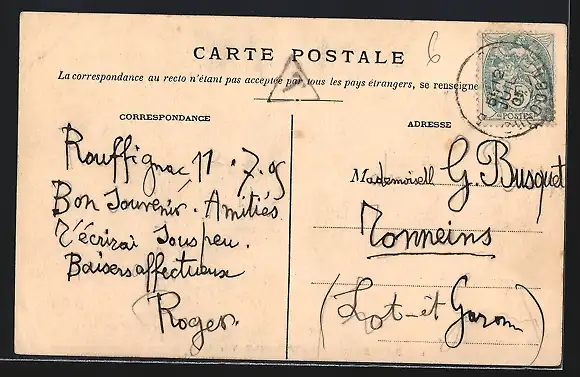 6
CARTE POSTALE
La correspondance au recto n'étant pas acceptée par tous les pays étrangers, se renseigne
CORRESPONDANCE
ADRESSE
Rouffignac 11.7.05
Bon Souvenir. Amitiés
T'écrirai Sous peu.
Baisers affectueux
Roger.
Mademoiselle G. Busquet
Tonneins
(Lot-et Garonn)
POSTES